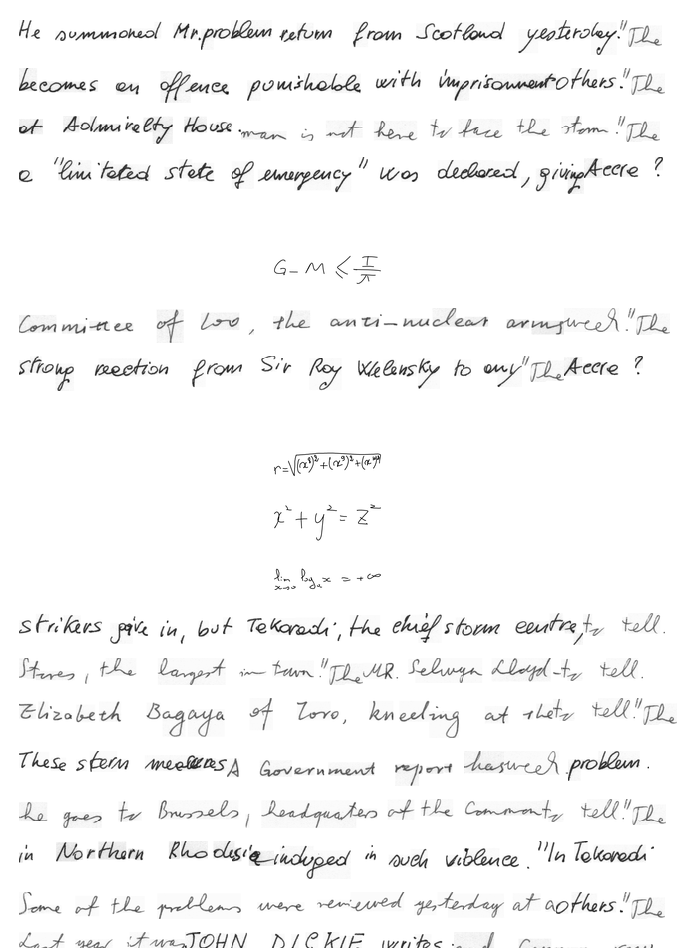 He summoned Mr. problem return from Scotland yesterday." The
becomes an offence punishable with imprisonment others." The
at Admiralty House. man is not here to face the storm." The
a "limitated state of emergency" was declared, giving Accra ?
G - M ≤ I/π
Committee of 100, the anti-nuclear arms week." The
strong reaction from Sir Roy Welensky to any" The Accra ?
r=√((x⁸)²+(x⁹)²+(x¹⁰
x² + y² = z²
lim x→∞ log_a x = +∞
strikers give in, but Tekoradi, the chief storm centre, to tell.
Stores, the largest in town." The MR. Selwyn Lloyd to tell.
Elizabeth Bagaya of Toro, kneeling at the to tell." The
These stern measures A Government report has week problem.
he goes to Brussels, headquaters of the Common to tell." The
in Northern Rhodesia indulged in such violence. "In Tekoradi
Some of the problems were reviewed yesterday at a others." The
Last year it was JOHN DICKIE writes